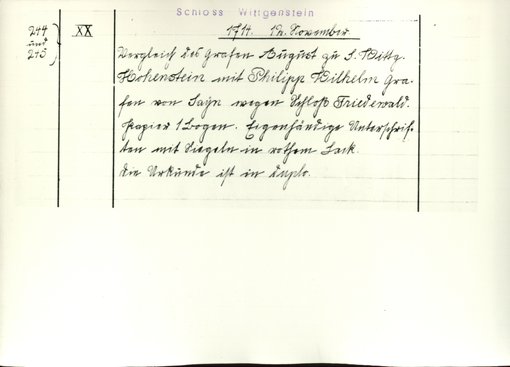 Schloss Wittgenstein
244 und 245 XX 1714. 12. November
Vergleich des Grafen August zu S. Wittg.
Hohenstein mit Philipp Wilhelm Gra-
fen von Sayn wegen Schloß Friedewald.
Papier 1 Bogen. Eigenhändige Unterschrif-
ten mit Siegeln in rothem Lack.
Die Urkunde ist in duplo.